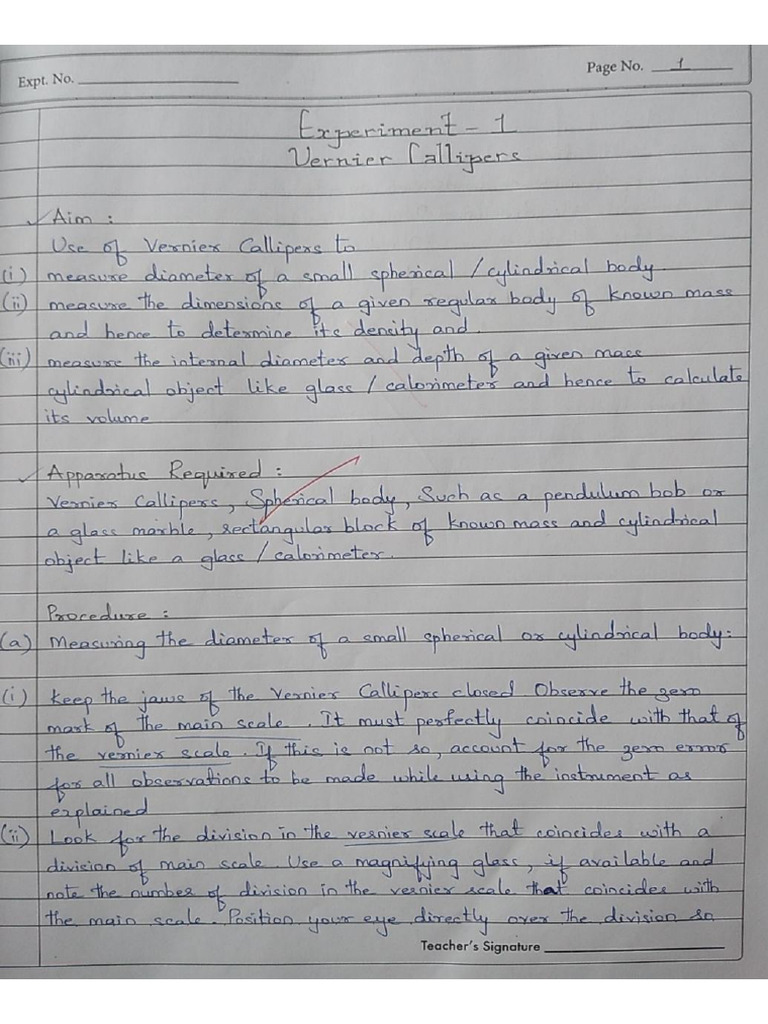 Expt. No.
Page No. 1
Experiment - 1
Vernier Callipers
Aim :
Use of Vernier Callipers to
(i) measure diameter of a small spherical / cylindrical body
(ii) measure the dimensions of a given regular body of known mass
and hence to determine its density and.
(iii) measure the internal diameter and depth of a given mass
cylindrical object like glass / calorimeter and hence to calculate
its volume
Apparatus Required :
Vernier Callipers, Spherical body, Such as a pendulum bob or
a glass marble, rectangular block of known mass and cylindrical
object like a glass / calorimeter.
Procedure :
(a) Measuring the diameter of a small spherical or cylindrical body:
(i) Keep the jaws of the Vernier Callipers closed Observe the zero
mark of the main scale. It must perfectly coincide with that of
the vernier scale. If this is not so, account for the zero error
for all observations to be made while using the instrument as
explained
(ii) Look for the division in the vernier scale that coincides with a
division of main scale. Use a magnifying glass, if available and
note the number of division in the vernier scale that coincides with
the main scale. Position your eye directly over the division so
Teacher's Signature